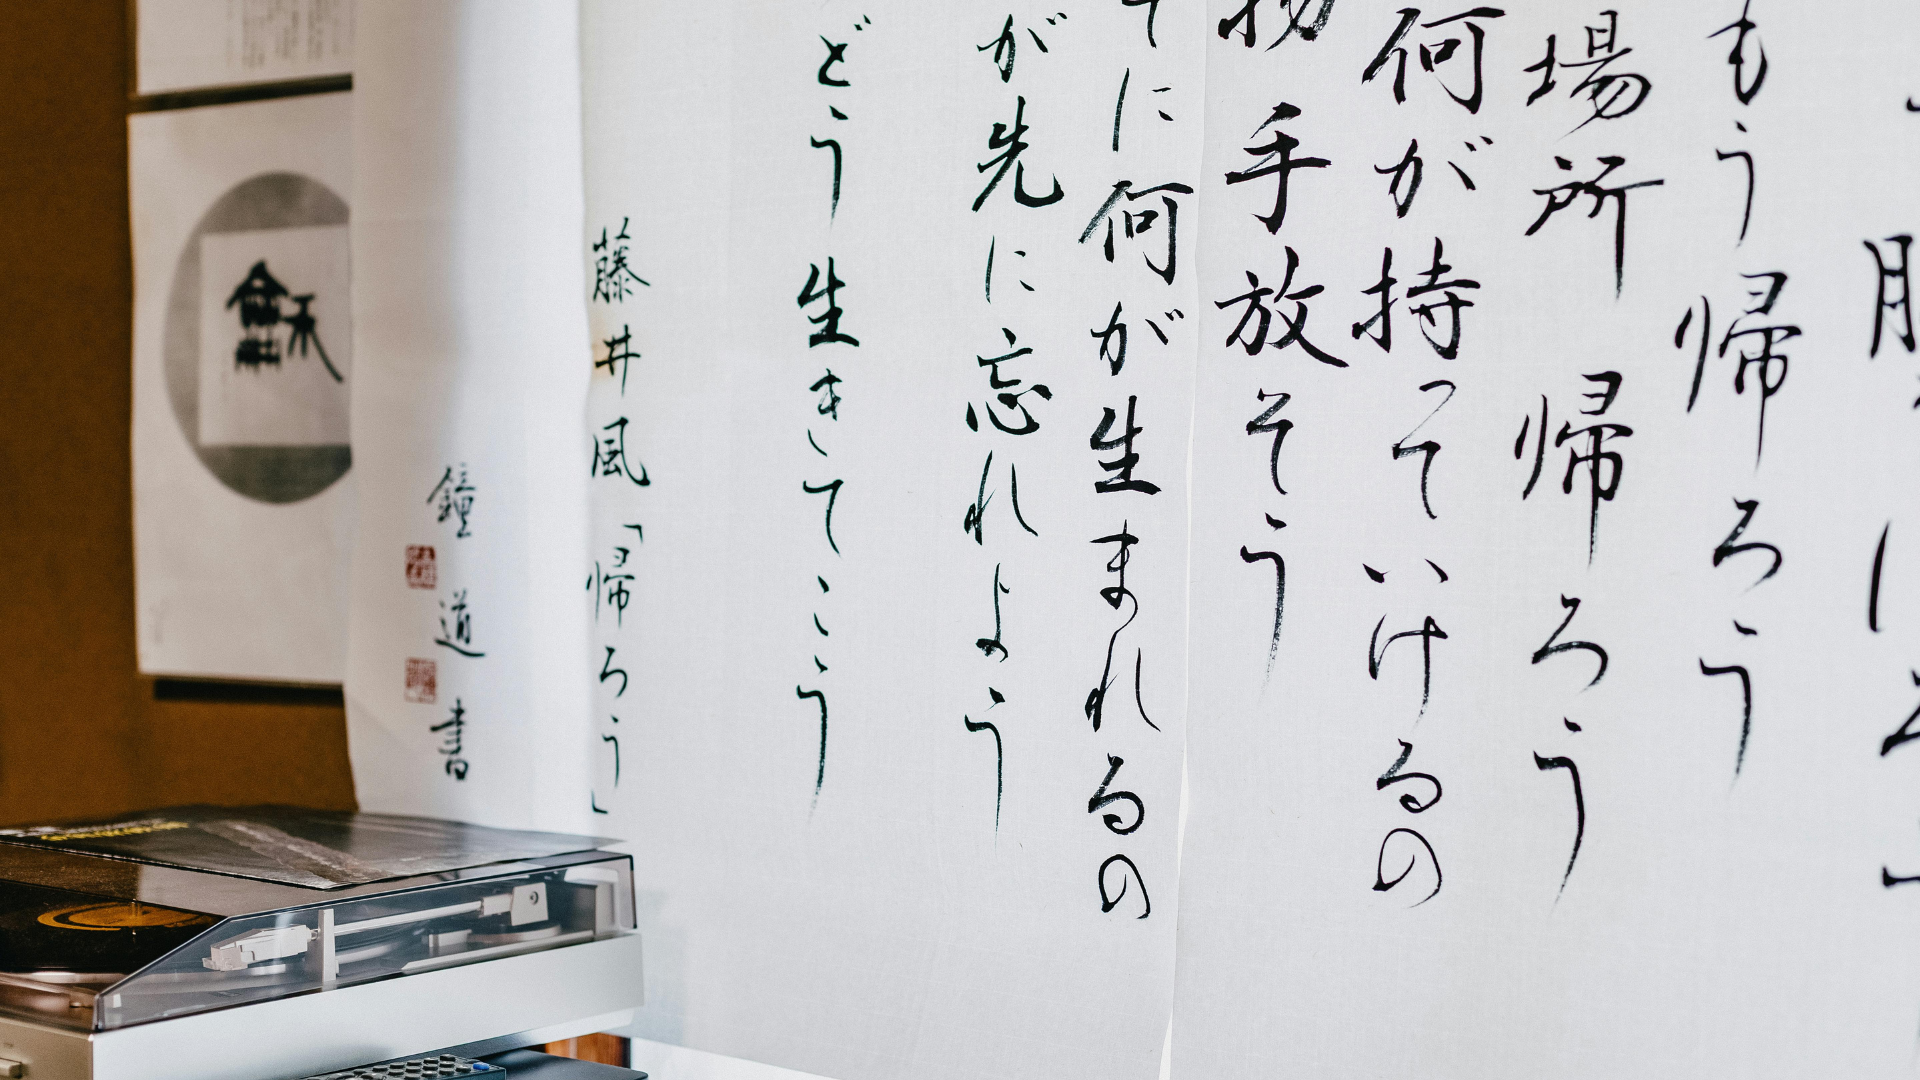 もう帰ろう
場所 帰ろう
何が持っていけるの
手放そう
てに何が生まれるの
が先に忘れよう
どう生きてこう
藤井風「帰ろう」
鐘道書
龢